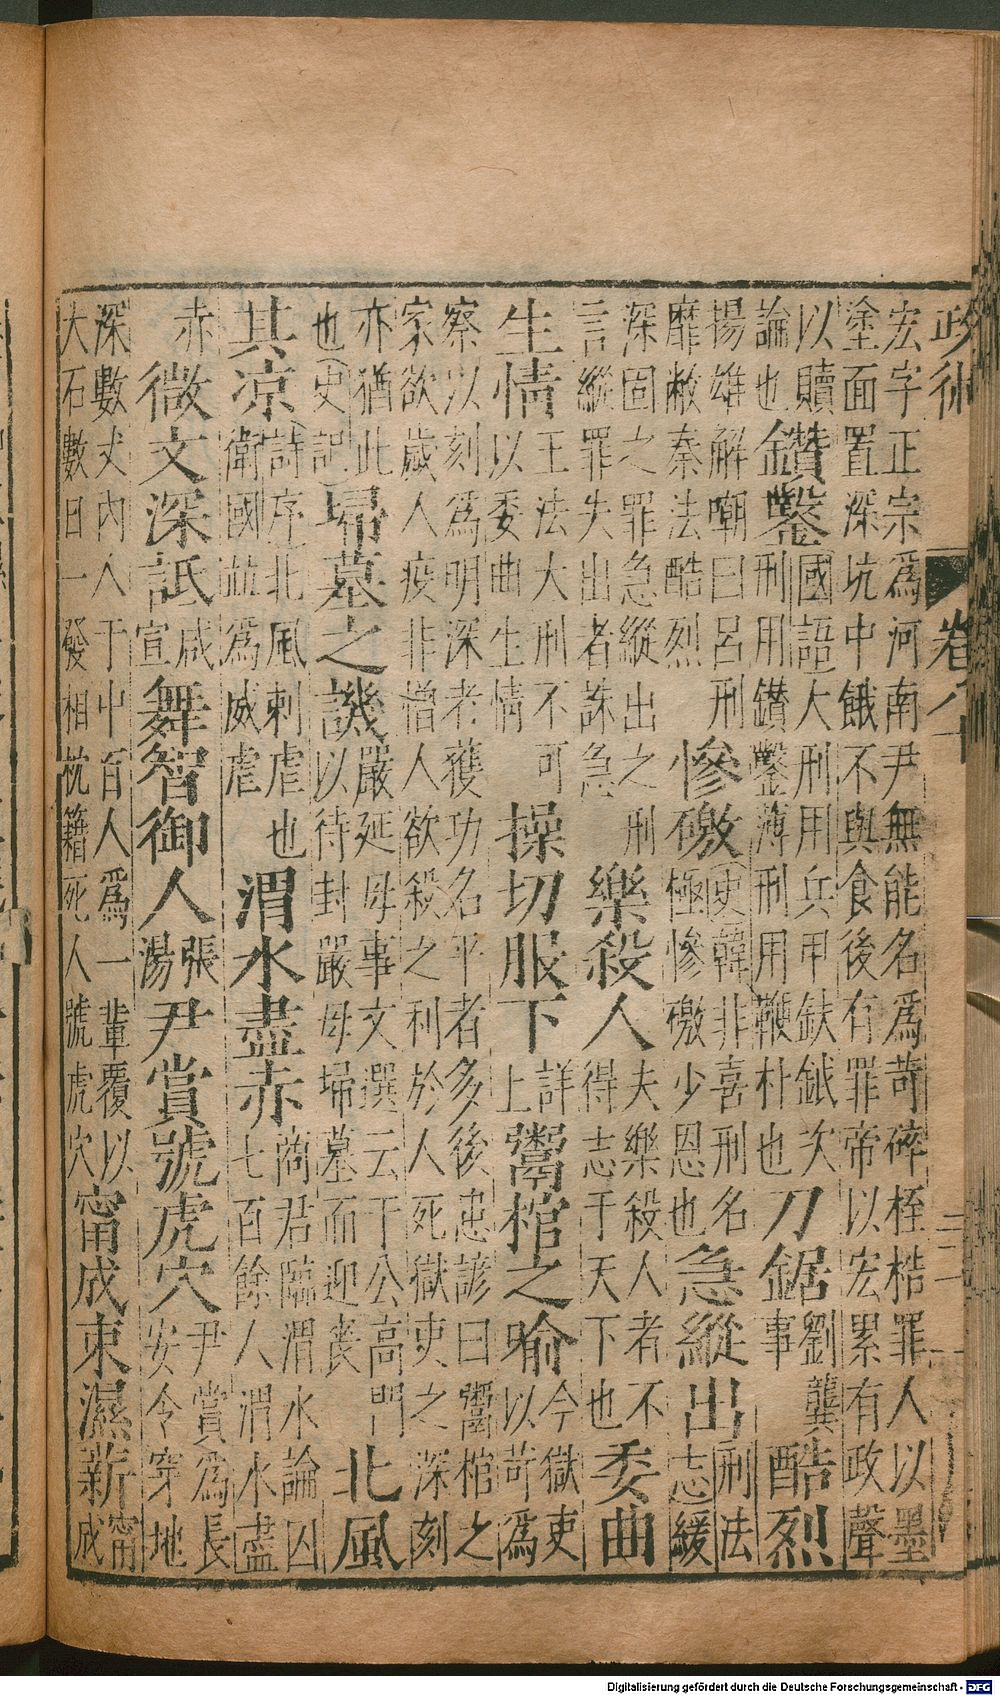 政術 卷八十 二一
宏字正宗為河南尹無能名為苛碎桎梏罪人以墨塗面置深坑中餓不與食後有罪帝以宏累有政聲
以贖論也 鑽鑿 國語大刑用兵甲鈇鉞次刑用鑽鑿薄刑用鞭朴也 刀鋸 劉龔事 酷烈
揚雄解嘲曰呂刑靡敝秦法酷烈 慘礉 史韓非喜刑名極慘礉少恩也 急縱出 刑法志緩
深固之罪急縱出之刑言縱罪失出者誅急 樂殺人 夫樂殺人者不得志于天下也 委曲
生情 王法大刑不可以委曲生情 操切服下 詳上 鬻棺之喻 今獄吏以苛為
察以刻為明深者獲功名平者多後患諺曰鬻棺之家欲歲人疫非憎人欲殺之利於人死獄吏之深刻
亦猶此也史記 埽墓之譏 嚴延母事文選云于公高門以待封嚴母埽墓而迎喪 北風
其凉 詩序北風刺虐也衛國並為威虐 渭水盡赤 商君臨渭水論囚七百餘人渭水盡
赤 微文深詆 咸宣 舞智御人 張湯 尹賞號虎穴 尹賞為長安令穿地
深數丈內人于中百人為一輩覆以大石數日一發相枕籍死人號虎穴 甯成束濕薪 甯成
Digitalisierung gefördert durch die Deutsche Forschungsgemeinschaft - DFG